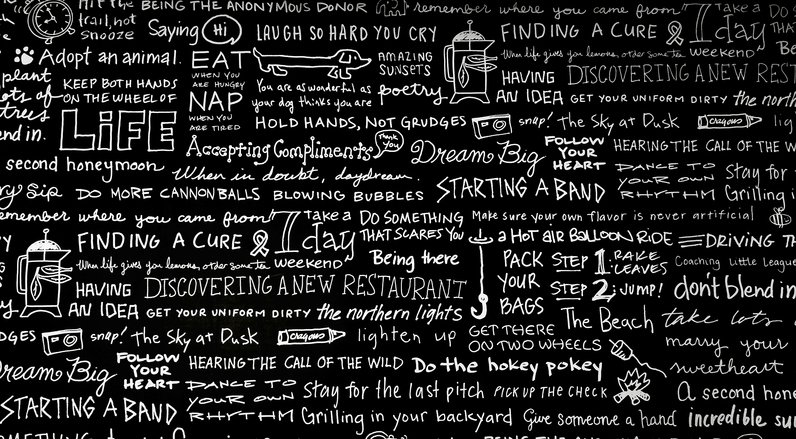 BEING THE ANONYMOUS DONOR remember where you came from Take a DO
trail, not
snooze
Saying Hi LAUGH SO HARD YOU CRY FINDING A CURE 7 day THAT
When life gives you lemons, order some tea weekend Be
Adopt an animal. EAT
WHEN YOU
ARE HUNGRY
NAP
WHEN YOU
ARE TIRED
AMAZING
SUNSETS
HAVING
AN IDEA
DISCOVERING A NEW REST
plant
lots of
trees
KEEP BOTH HANDS
ON THE WHEEL OF
LiFE
You are as wonderful as
your dog thinks you are
poetry
GET YOUR UNIFORM DIRTY the north
HOLD HANDS, NOT GRUDGES snap! the Sky at Dusk crayons lig
nd in.
Accepting Compliments Thank you Dream Big FOLLOW
YOUR
HEART
HEARING THE CALL OF THE WILD
second honeymoon When in doubt, daydream.
DANCE TO
YOUR OWN
RHYTHM
Stay for t
Grilling i
ry Sip DO MORE CANNONBALLS BLOWING BUBBLES STARTING A BAND
remember where you came from Take a DO SOMETHING
THAT SCARES YOU
Make sure your own flavor is never artificial
FINDING A CURE 7 day
weekend
Being there
a HOT AIR BALLOON RIDE DRIVING TH
When life gives you lemons, order some tea
HAVING
AN IDEA
DISCOVERING A NEW RESTAURANT
PACK
YOUR
BAGS
STEP 1: RAKE
LEAVES
STEP 2: JUMP!
Coaching Little League
don't blend in
GET YOUR UNIFORM DIRTY the northern lights
DGES snap! the Sky at Dusk crayons lighten up
GET THERE
ON TWO WHEELS
The Beach take lots o
marry your
sweetheart
Dream Big FOLLOW
YOUR
HEART
HEARING THE CALL OF THE WILD Do the hokey pokey
DANCE TO
YOUR OWN
RHYTHM
Stay for the last pitch PICK UP THE CHECK A second hone
STARTING A BAND Grilling in your backyard Give someone a hand incredible sun